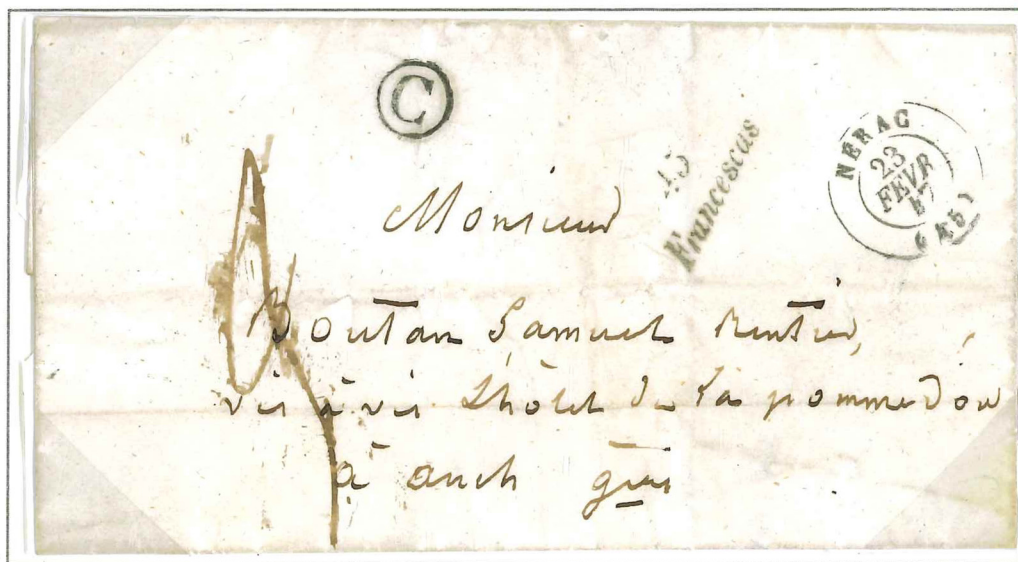 C
45
Francescas
NERAC
23
FEVR
47
(45)
Monsieur
Boutan Samuel Rentier,
vis à vis L'hôtel de La pomme d'or
à auch gers